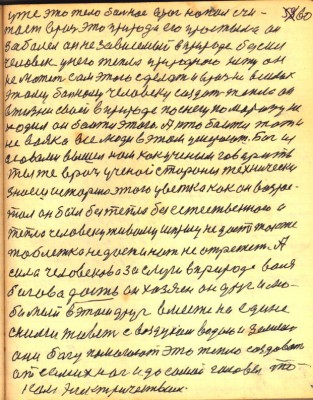 уже это тело больное врач нашол счи-
тает врач это природа его простыла он
заболел он не зависимый в природе больной
человек у него тепла природного нету он
не может сам этого сделать и врач не в силах
этому больному человеку создать тепло он
в жизни своей в природе по снегу по морозу не
ходил он боится этого. А что боится то ти
не
все люди в этом умирают. Бог и
словами вышел нам как ученым говорить
ты же врач ученой стороны технически
знаеш историю этого цветка как он возрас-
тал он был бы тепла без естественного а
тепла человеку живому шприц не даст также
таблетка не достанет не отрежет. А
сила человекова заслуги в природе воля
богова дасть он хозяин он друг и лю-
бимый в этом друг вместе на едине
с ними живет с воздухом водою и землею
они богу помогают это тепло создавать
от самих ног и до самой головы то-
ком электричеством.